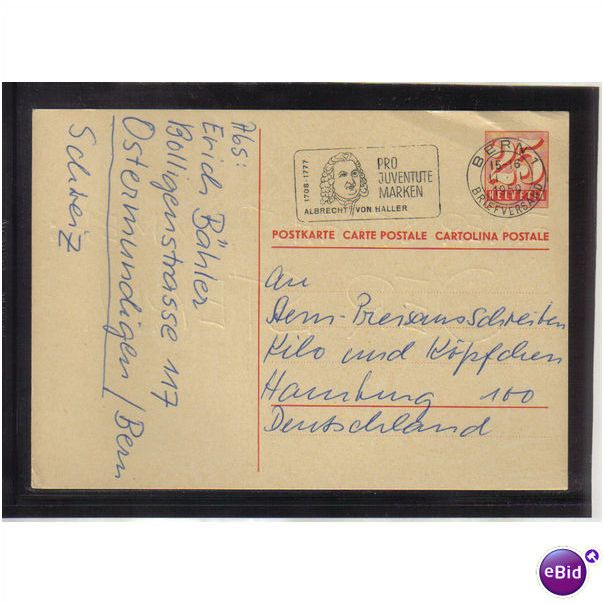 Abs:
Erich Bähler
Bolligenstrasse 117
Ostermundigen / Bern
Schweiz
1708-1777
PRO
JUVENTUTE
MARKEN
ALBRECHT VON HALLER
BERN 1
BRIEFVERSAND
25
HELVETIA
POSTKARTE CARTE POSTALE CARTOLINA POSTALE
An
Stern-Preisausschreiben
Kilo und Köpfchen
Hamburg 100
Deutschland
eBid